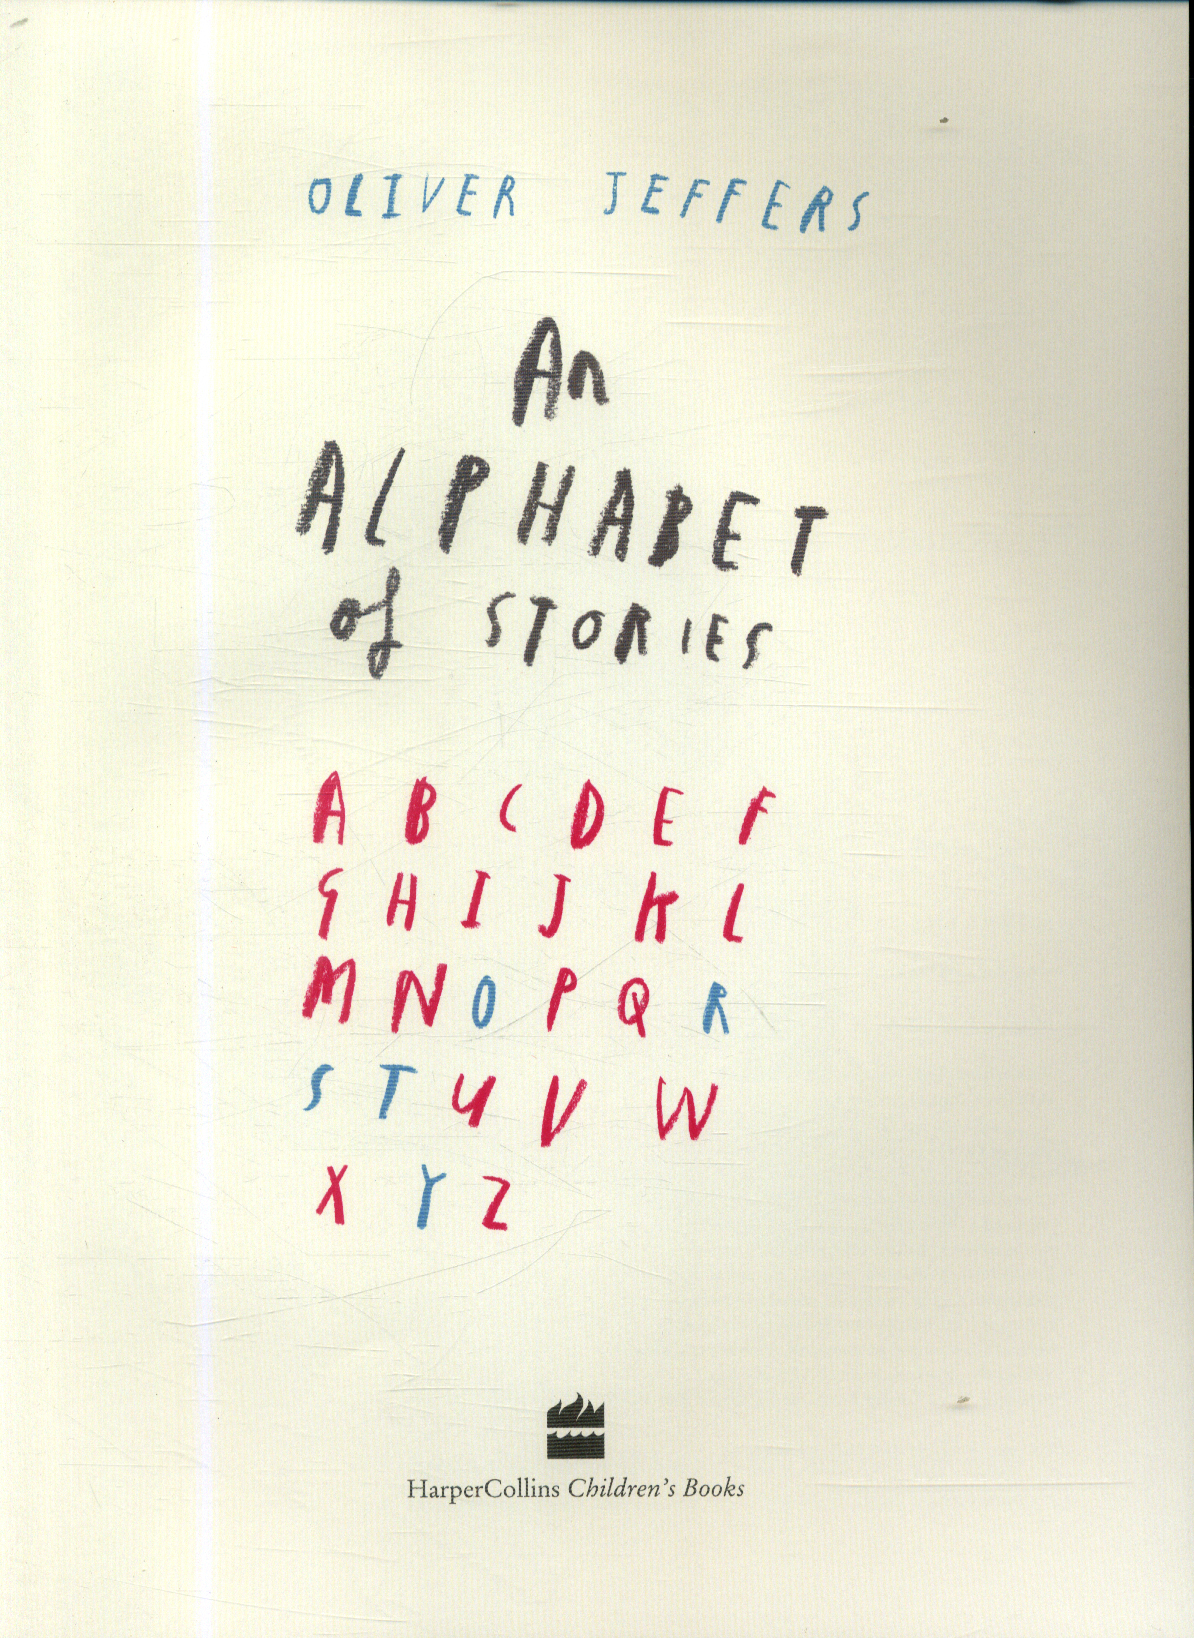 OLIVER JEFFERS
An
ALPHABET
of STORIES
A B C D E F
G H I J K L
M N O P Q R
S T U V W
X Y Z
HarperCollins Children's Books